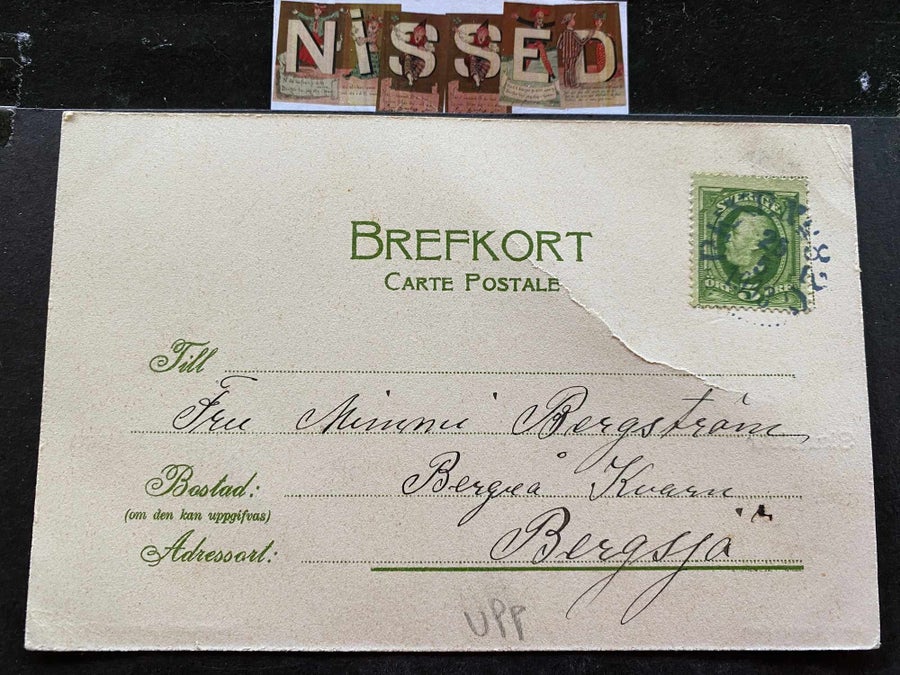 NISSED
BREFKORT
CARTE POSTALE
SVERIGE
ÖRE 5 ÖRE
Till
Fru Mimmi Bergström
Bostad:
Kvarn
(om den kan uppgifvas)
Adressort:
Bergsjö
UPP